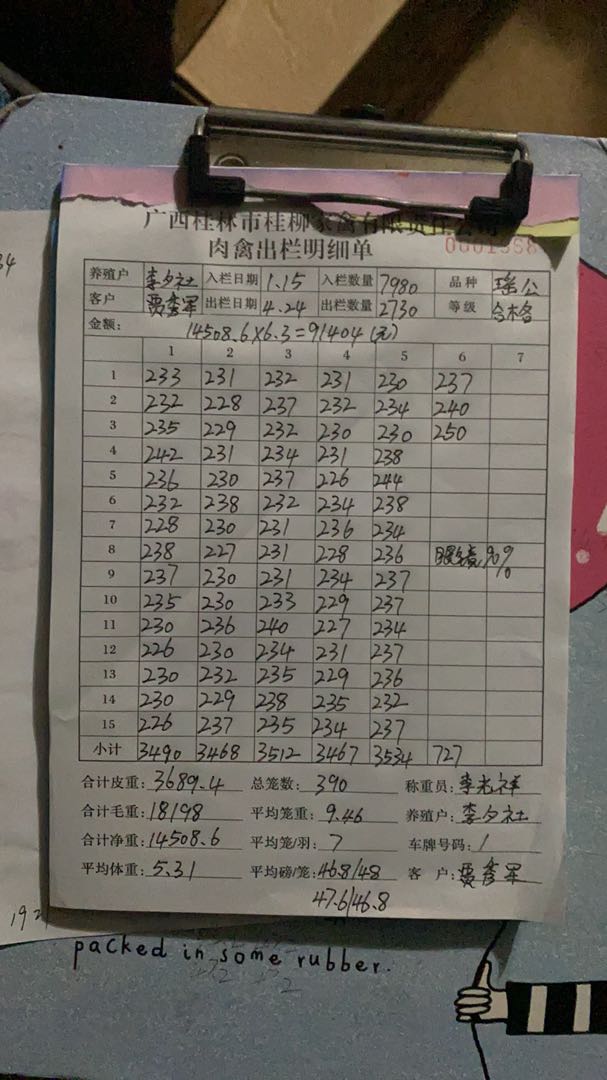 广西桂林市桂柳家禽有限责任公司
肉禽出栏明细单
养殖户 李夕社 入栏日期 1.15 入栏数量 7980 品种 瑶公
客户 贾秀军 出栏日期 4.24 出栏数量 2730 等级 合格
金额: 14508.6×6.3=91404(元)
1 2 3 4 5 6 7
1 233 231 232 231 230 237
2 232 228 237 232 234 240
3 235 229 232 230 230 250
4 242 231 234 231 238
5 236 230 237 226 244
6 232 238 232 234 238
7 228 230 231 236 234
8 238 227 231 228 236 90%
9 237 230 231 234 237
10 235 230 233 229 237
11 230 236 240 227 234
12 226 230 234 231 237
13 230 232 235 229 236
14 230 229 238 235 232
15 226 237 235 234 237
小计 3490 3468 3512 3467 3534 727
合计皮重: 3689.4 总笼数: 390 称重员: 李光祥
合计毛重: 18198 平均笼重: 9.46 养殖户: 李夕社
合计净重: 14508.6 平均笼/羽: 7 车牌号码: /
平均体重: 5.31 平均磅/笼: 46.8/48 客户: 贾秀军
47.6/46.8
packed in some rubber.